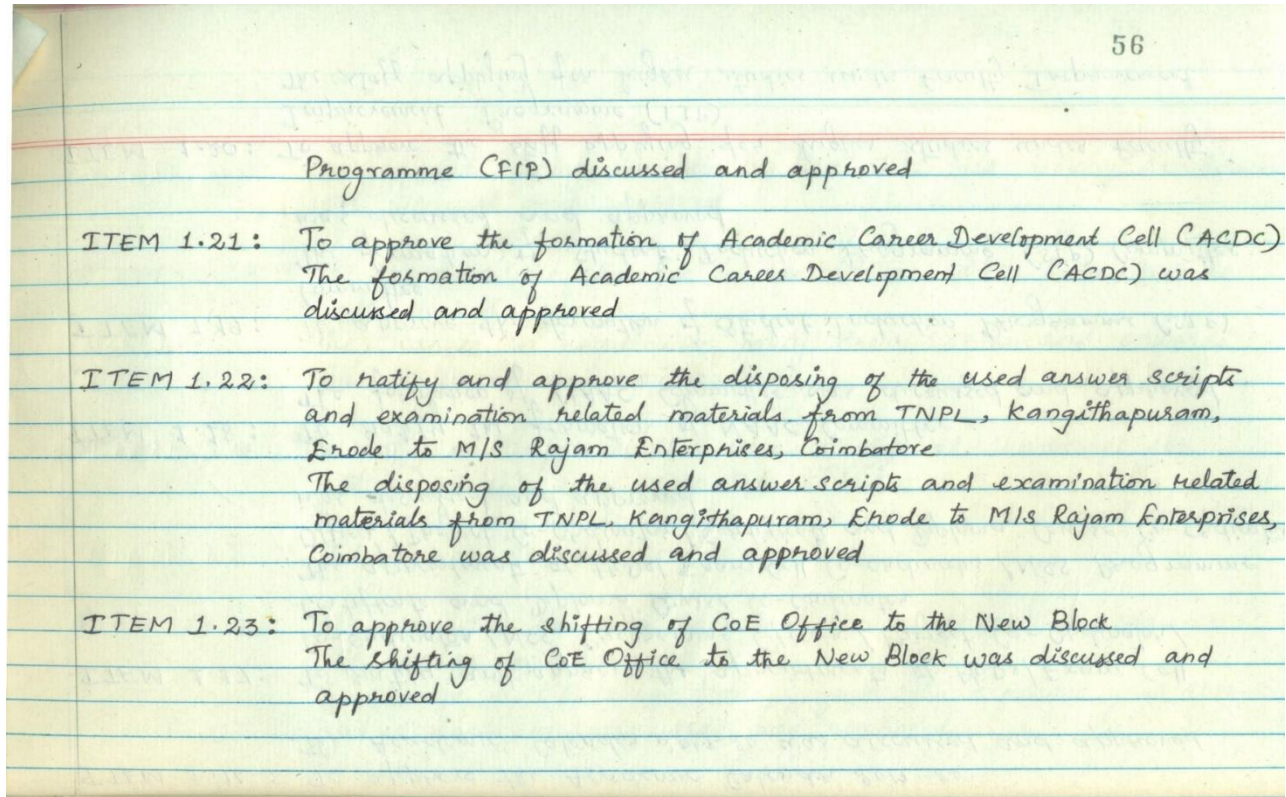 56
Programme (FIP) discussed and approved
ITEM 1.21: To approve the formation of Academic Career Development Cell (ACDC)
The formation of Academic Career Development Cell (ACDC) was
discussed and approved
ITEM 1.22: To ratify and approve the disposing of the used answer scripts
and examination related materials from TNPL, Kangithapuram,
Erode to M/S Rajam Enterprises, Coimbatore
The disposing of the used answer scripts and examination related
materials from TNPL, Kangithapuram, Erode to M/s Rajam Enterprises,
Coimbatore was discussed and approved
ITEM 1.23: To approve the shifting of CoE Office to the New Block
The shifting of CoE Office to the New Block was discussed and
approved